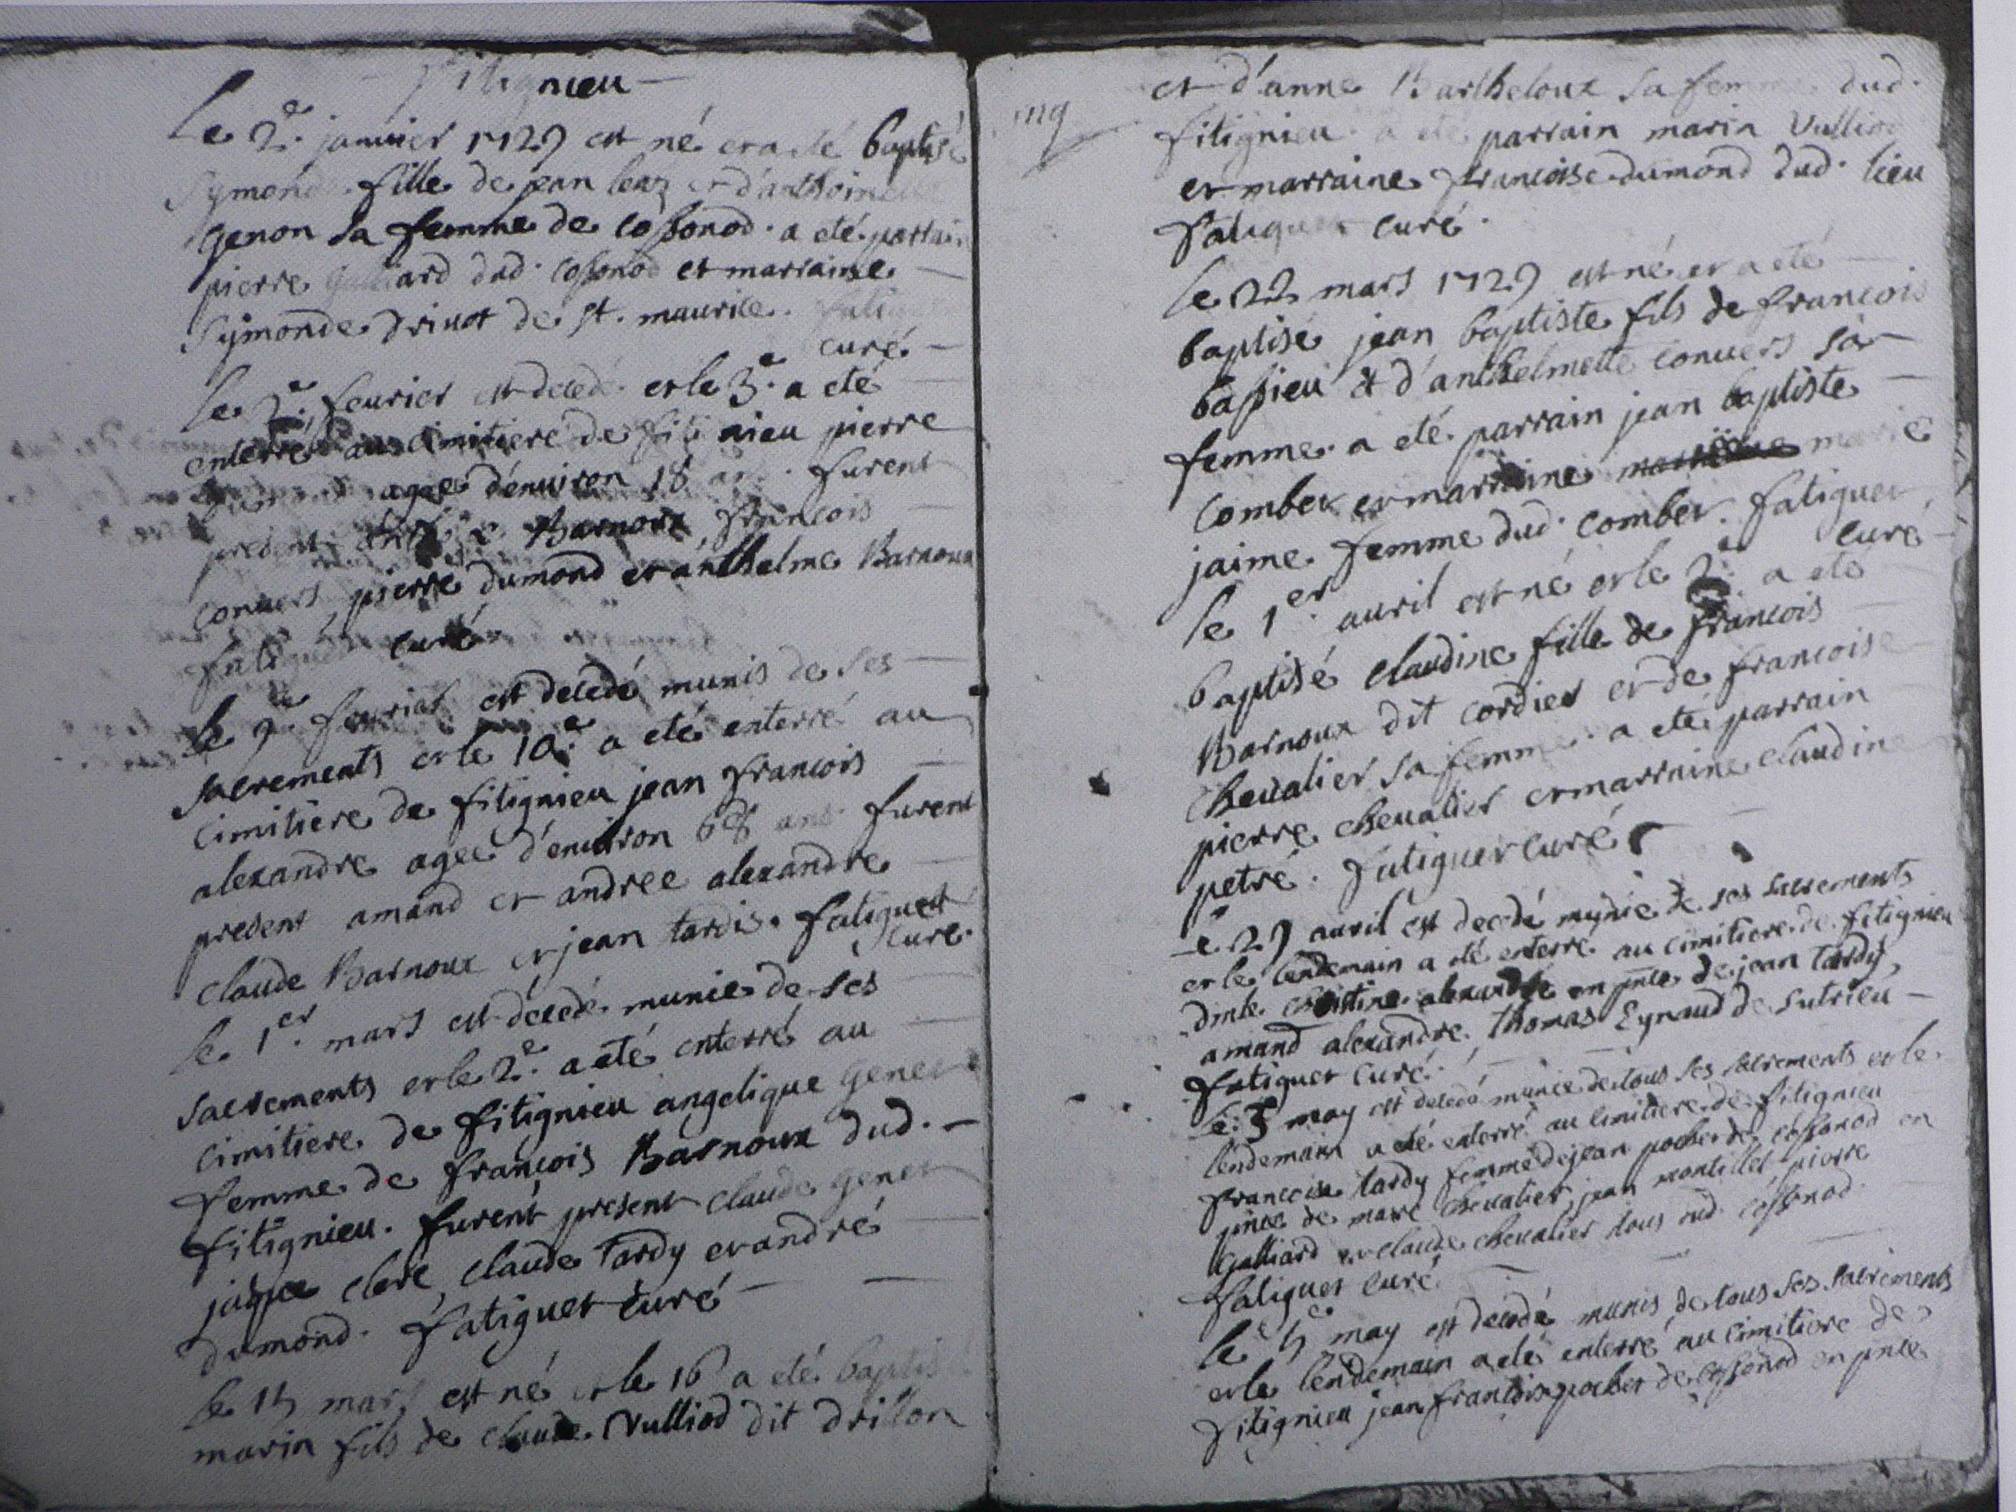 fitignieu
le 2e. janvier 1729 est né et a eté baptisé
Symonde fille de jean et d'anthoinette
genon sa femme de cossonod. a eté parrain
pierre galliard dud. cossonod et marraine
Symonde drivot de st. maurice. fatiguet
curé
le 2e. feurier est decedé et le 3e. a eté
enterré au cimitiere de fitignieu pierre
dumond agee d'enuiron 18 ans. furent
present Barnoux françois
conuers, pierre dumond et anthelme Barnoux
fatiguet curé
le 9e. feurier est decedé munis de ses
sacrements et le 10e. a eté enterré au
cimitiere de fitignieu jean françois
alexandre agee d'enuiron 68 ans furent
present amand et andree alexandre
claude Barnoux et jean tardi. fatiguet
curé.
le 1er. mars est decedé munie de ses
sacrements et le 2e. a eté enterré au
cimitiere de fitignieu angelique genet
femme de françois Barnoux dud.
fitignieu. furent present claude genet
jaque clerc, claude tardy et andré
dumond. fatiguet curé
le 15 mars est né et le 16 a eté baptisé
marin fils de claude Vulliod dit drillon
119
et d'anne Bartheloux sa femme dud.
fitignieu a eté parrain marin Vulliod
et marraine françoise dumond dud. lieu
fatiguet curé.
le 22 mars 1729 est né et a eté
baptisé jean baptiste fils de françois
bassieu & d'anthelmette conuers sa
femme. a eté parrain jean baptiste
combet et marraine marie
jaime femme dud. combet. fatiguet
curé
le 1er. auril est né et le 2e. a eté
baptisé claudine fille de françois
Barnoux dit cordier et de françoise
cheualier sa femme. a eté parrain
pierre cheualier et marraine claudine
petré. fatiguet curé
le 29 auril est decedé munie de ses sacrements
et le lendemain a eté enterré au cimitiere de fitignieu
christine alexandre en pnce de jean tardy,
amand alexandre, thomas Eynaud de sutrieu
fatiguet curé.
le 3 may est decedé munie de tous ses sacrements et le
lendemain a eté enterré au cimitiere de fitignieu
françoise tardy femme de jean pochet de cossonod en
pnce de marc cheualier, jean montillet pierre
galliard et claude cheualier tous dud. cossonod.
fatiguet curé.
le 5e may est decedé munis de tous ses sacrements
et le lendemain a eté enterré au cimitiere de
fitignieu jean françois pochet de cossonod en pnce